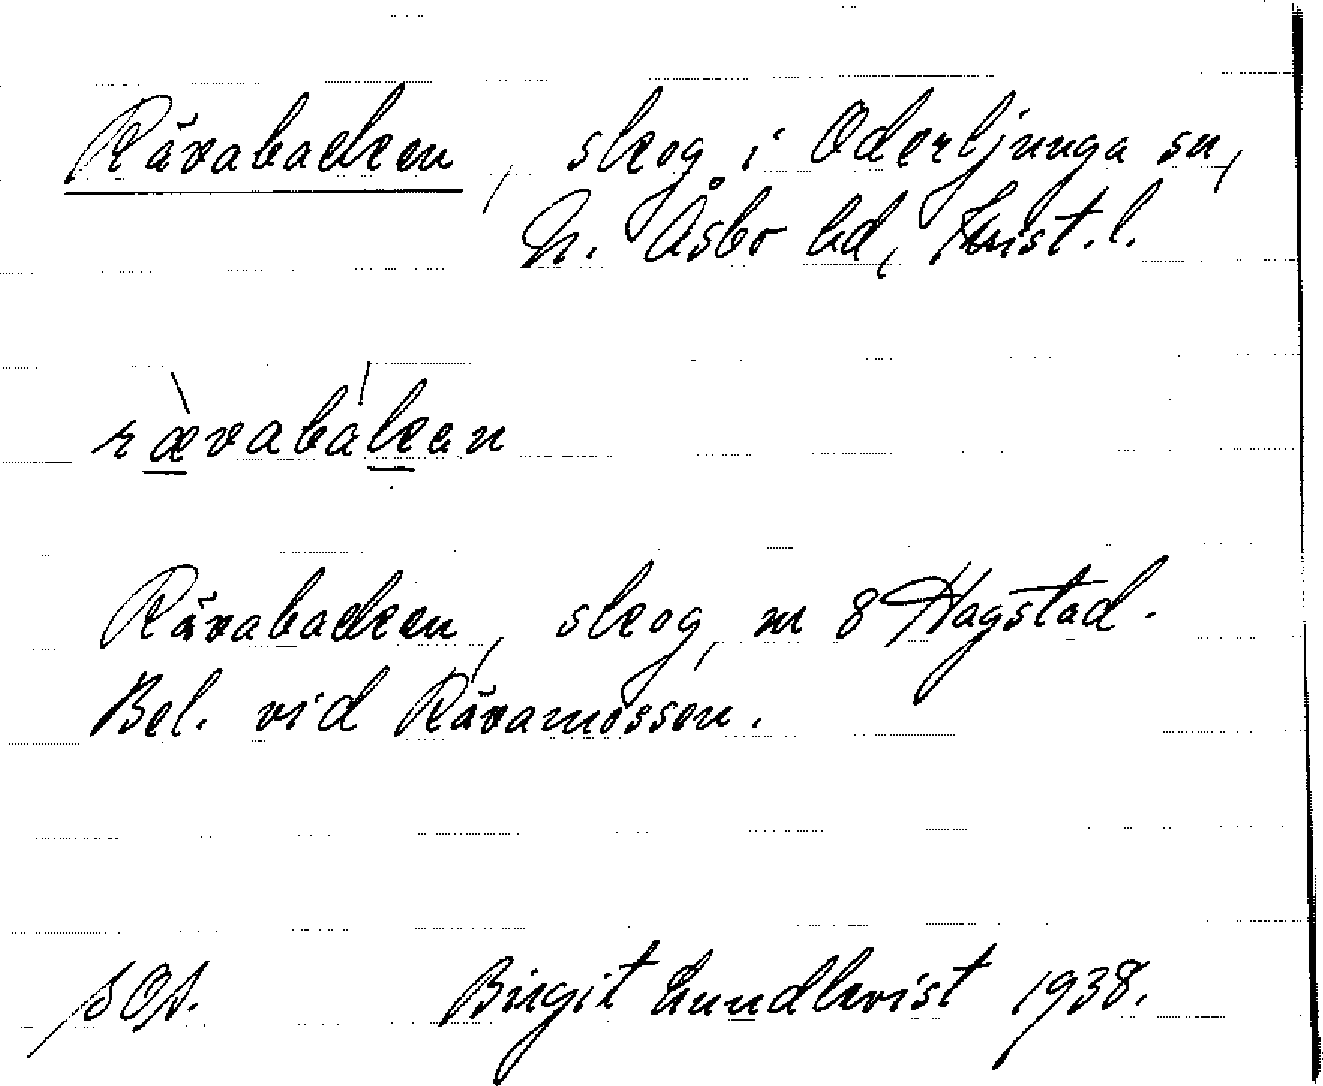 Rävabacken, skog i Oderljunga sn,
N. Åsbo hd, Krist. l.
rævabakan
Rävabacken, skog, nr 8 Hagstad.
Bel. vid Rävamossen.
Birgit Lundkvist 1938.